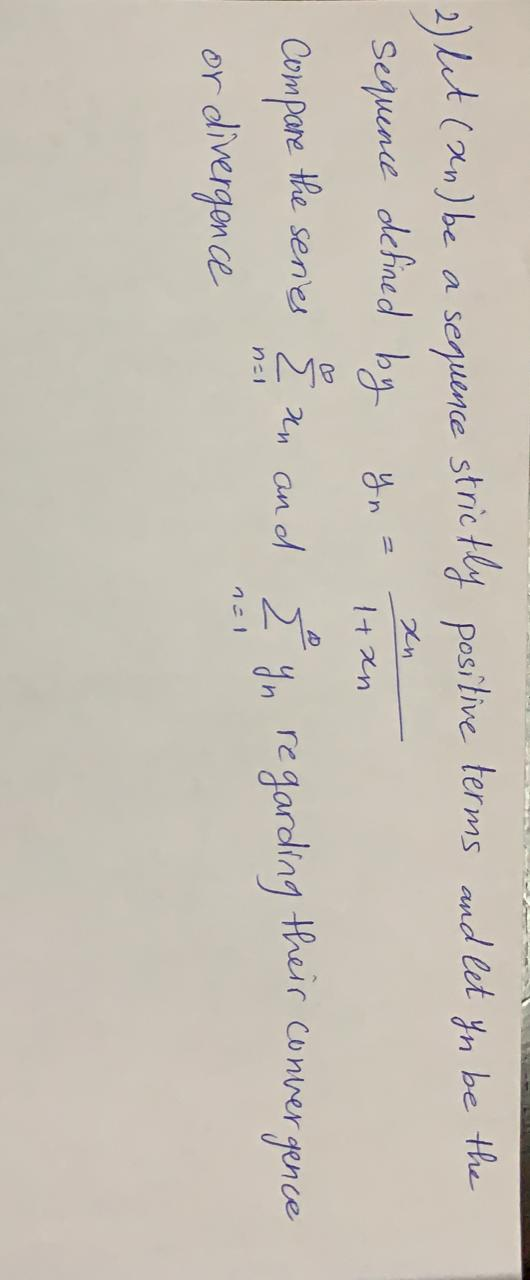 2) let (xn) be a sequence strictly positive terms and let yn be the
sequence defined by yn = xn / 1+xn
Compare the series ∑_{n=1}^{∞} xn and ∑_{n=1}^{∞} yn regarding their convergence
or divergence